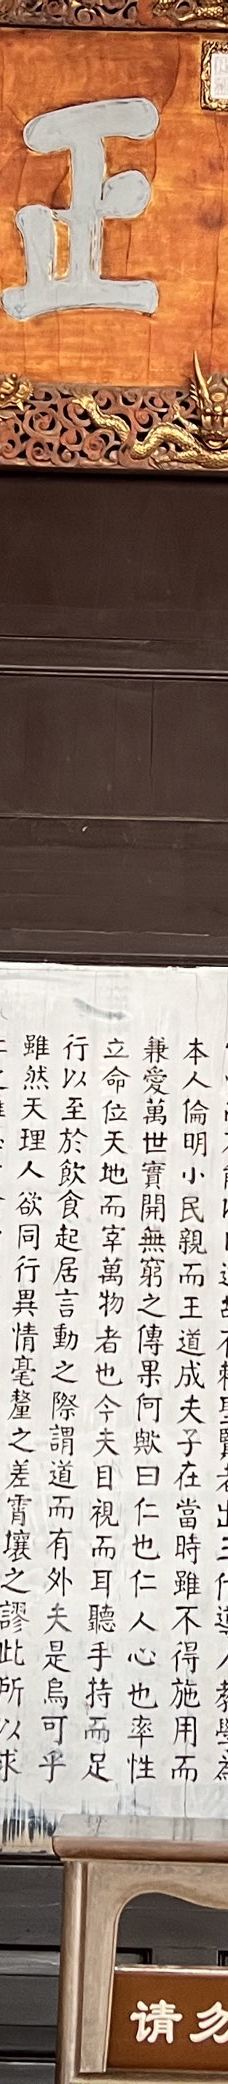 正
本人倫明小民親而王道成夫子在當時雖不得施用而
兼愛萬世實開無窮之傳果何歟曰仁也仁人心也率性
立命位天地而宰萬物者也今夫目視而耳聽手持而足
行以至於飲食起居言動之際謂道而有外夫是烏可乎
雖然天理人欲同行異情毫釐之差霄壤之謬此所以求
请勿